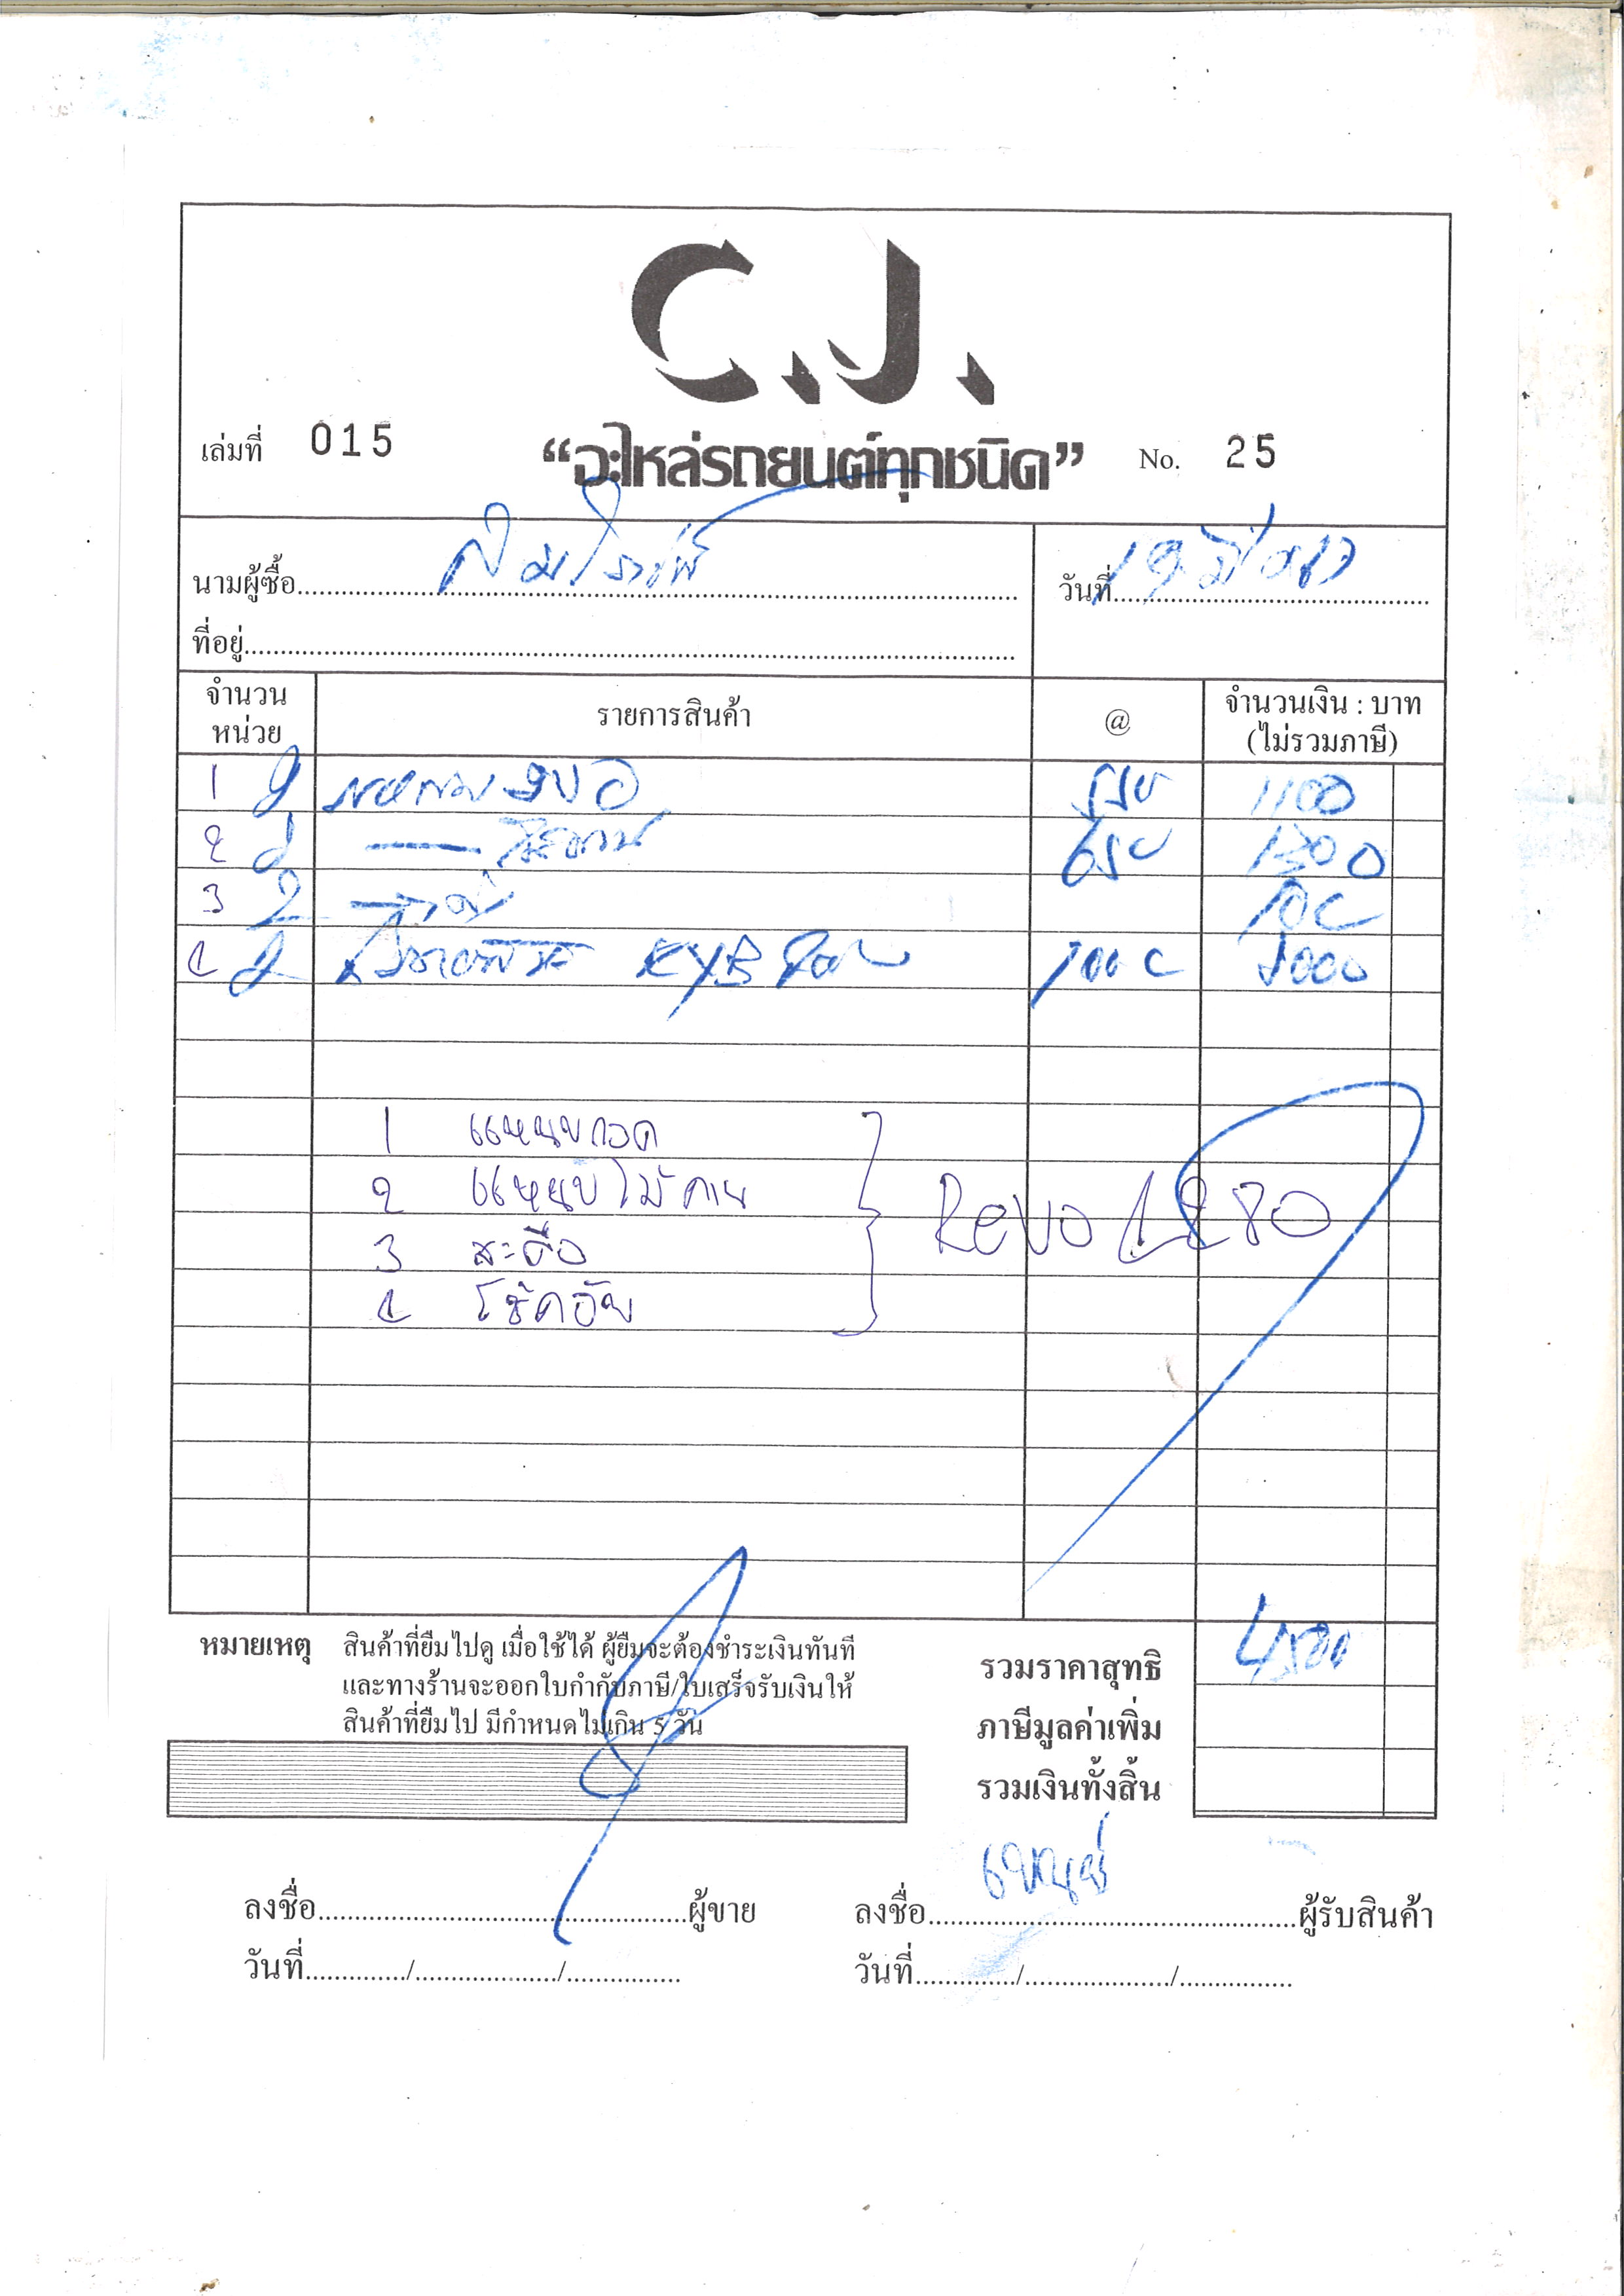 C.J.
เล่มที่ 015
“อะไหล่รถยนต์ทุกชนิด”
No. 25
นามผู้ซื้อ
วันที่ 19
ที่อยู่
จำนวน หน่วย
รายการสินค้า
@
จำนวนเงิน : บาท (ไม่รวมภาษี)
1 2 550 1100
2 2 650 1300
3 2 100
4 2 KYB 1000 2000
1 แหนบกวด
2 แหนบไม้คาน
3 สะดือ
4 โช้คอัพ
} Revo 4280
หมายเหตุ สินค้าที่ยืมไปดู เมื่อใช้ได้ ผู้ยืมจะต้องชำระเงินทันที
และทางร้านจะออกใบกำกับภาษี/ใบเสร็จรับเงินให้
สินค้าที่ยืมไป มีกำหนดไม่เกิน 5 วัน
รวมราคาสุทธิ 4500
ภาษีมูลค่าเพิ่ม
รวมเงินทั้งสิ้น
ลงชื่อ ผู้ขาย
ลงชื่อ ผู้รับสินค้า
วันที่ / /
วันที่ / /